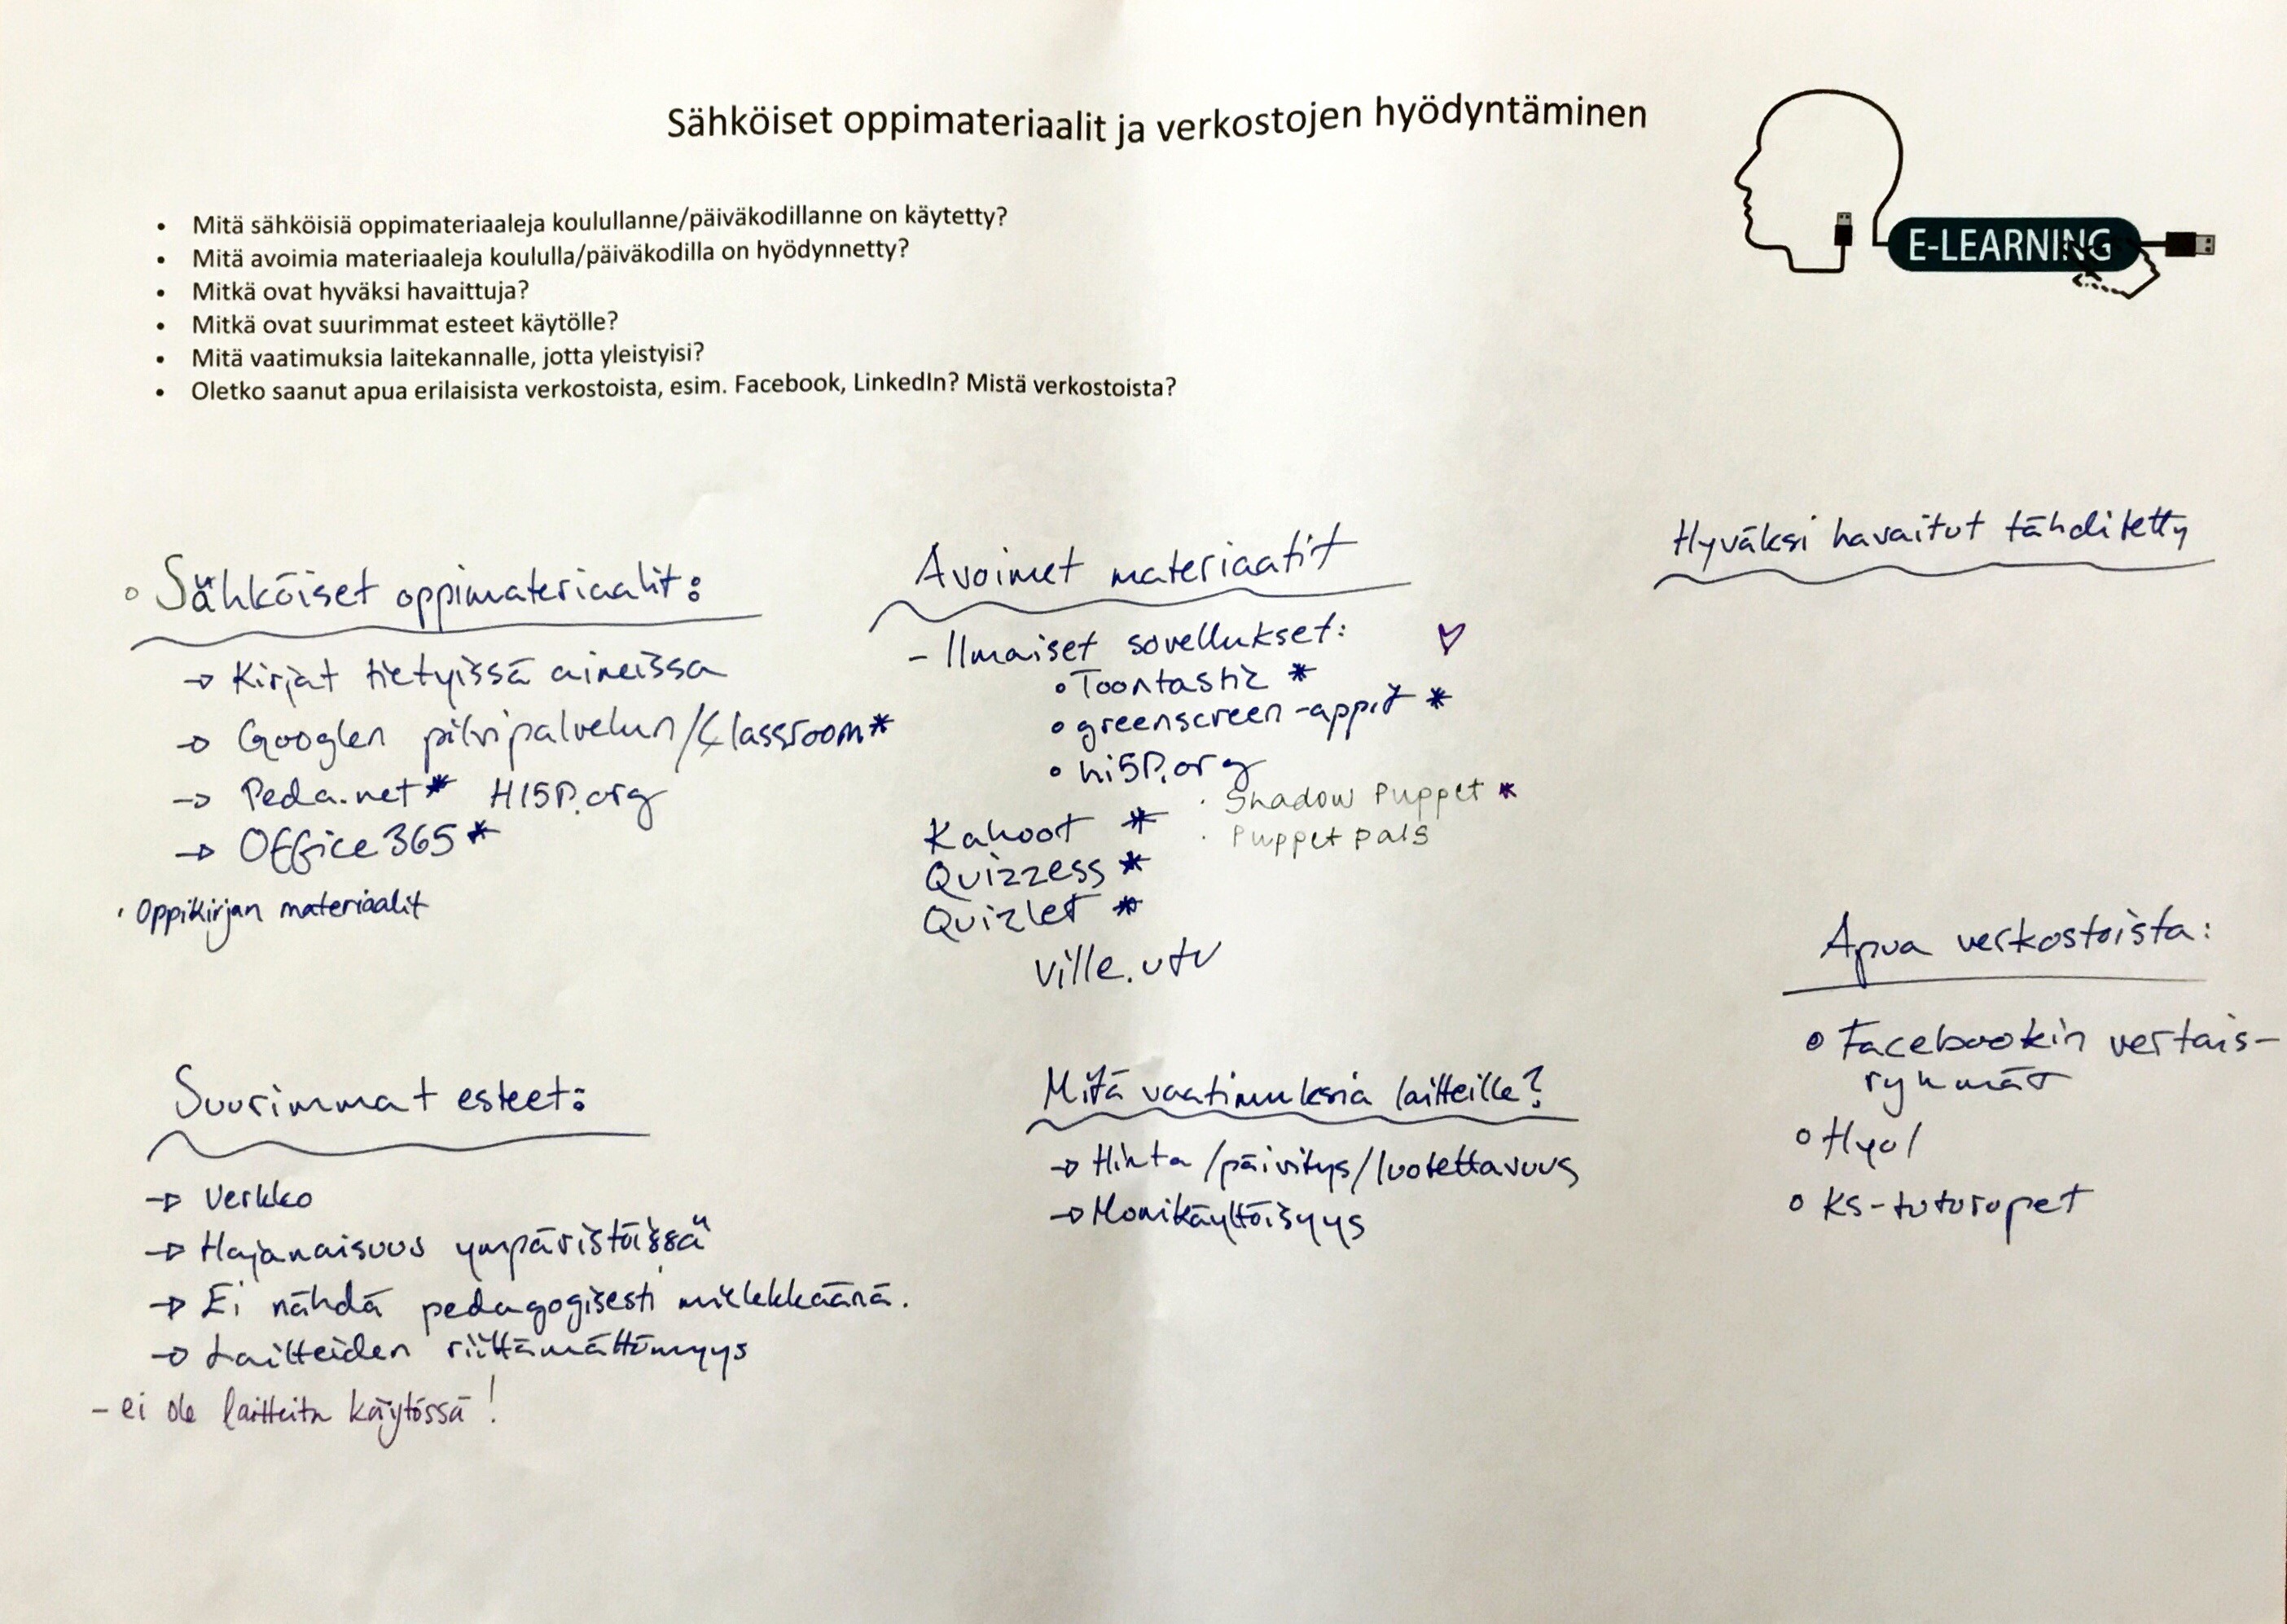 Sähköiset oppimateriaalit ja verkostojen hyödyntäminen
E-LEARNING
• Mitä sähköisiä oppimateriaaleja koulullanne/päiväkodillanne on käytetty?
• Mitä avoimia materiaaleja koululla/päiväkodilla on hyödynnetty?
• Mitkä ovat hyväksi havaittuja?
• Mitkä ovat suurimmat esteet käytölle?
• Mitä vaatimuksia laitekannalle, jotta yleistyisi?
• Oletko saanut apua erilaisista verkostoista, esim. Facebook, LinkedIn? Mistä verkostoista?
Sähköiset oppimateriaalit:
→ Kirjat tietyissä aineissa
→ Googlen pilvipalvelun/Classroom *
→ Peda.net * H15P.org
→ Office 365 *
• Oppikirjan materiaalit
Avoimet materiaalit
- Ilmaiset sovellukset: ♡
• Toontastic *
• greenscreen-appit *
• hi5P.org
• Shadow Puppet *
• Puppet pals
Kahoot *
Quizzess *
Quizlet *
ville.utu
Hyväksi havaitut tähditetty
Apua verkostoista:
• Facebookin vertais-
ryhmät
• Hyol
• KS-tutoropet
Suurimmat esteet:
→ Verkko
→ Hajanaisuus ympäristöissä
→ Ei nähdä pedagogisesti mielekkäänä.
→ Laitteiden riittämättömyys
- ei ole laitteita käytössä!
Mitä vaatimuksia laitteille?
→ Hinta/päivitys/luotettavuus
→ Monikäyttöisyys